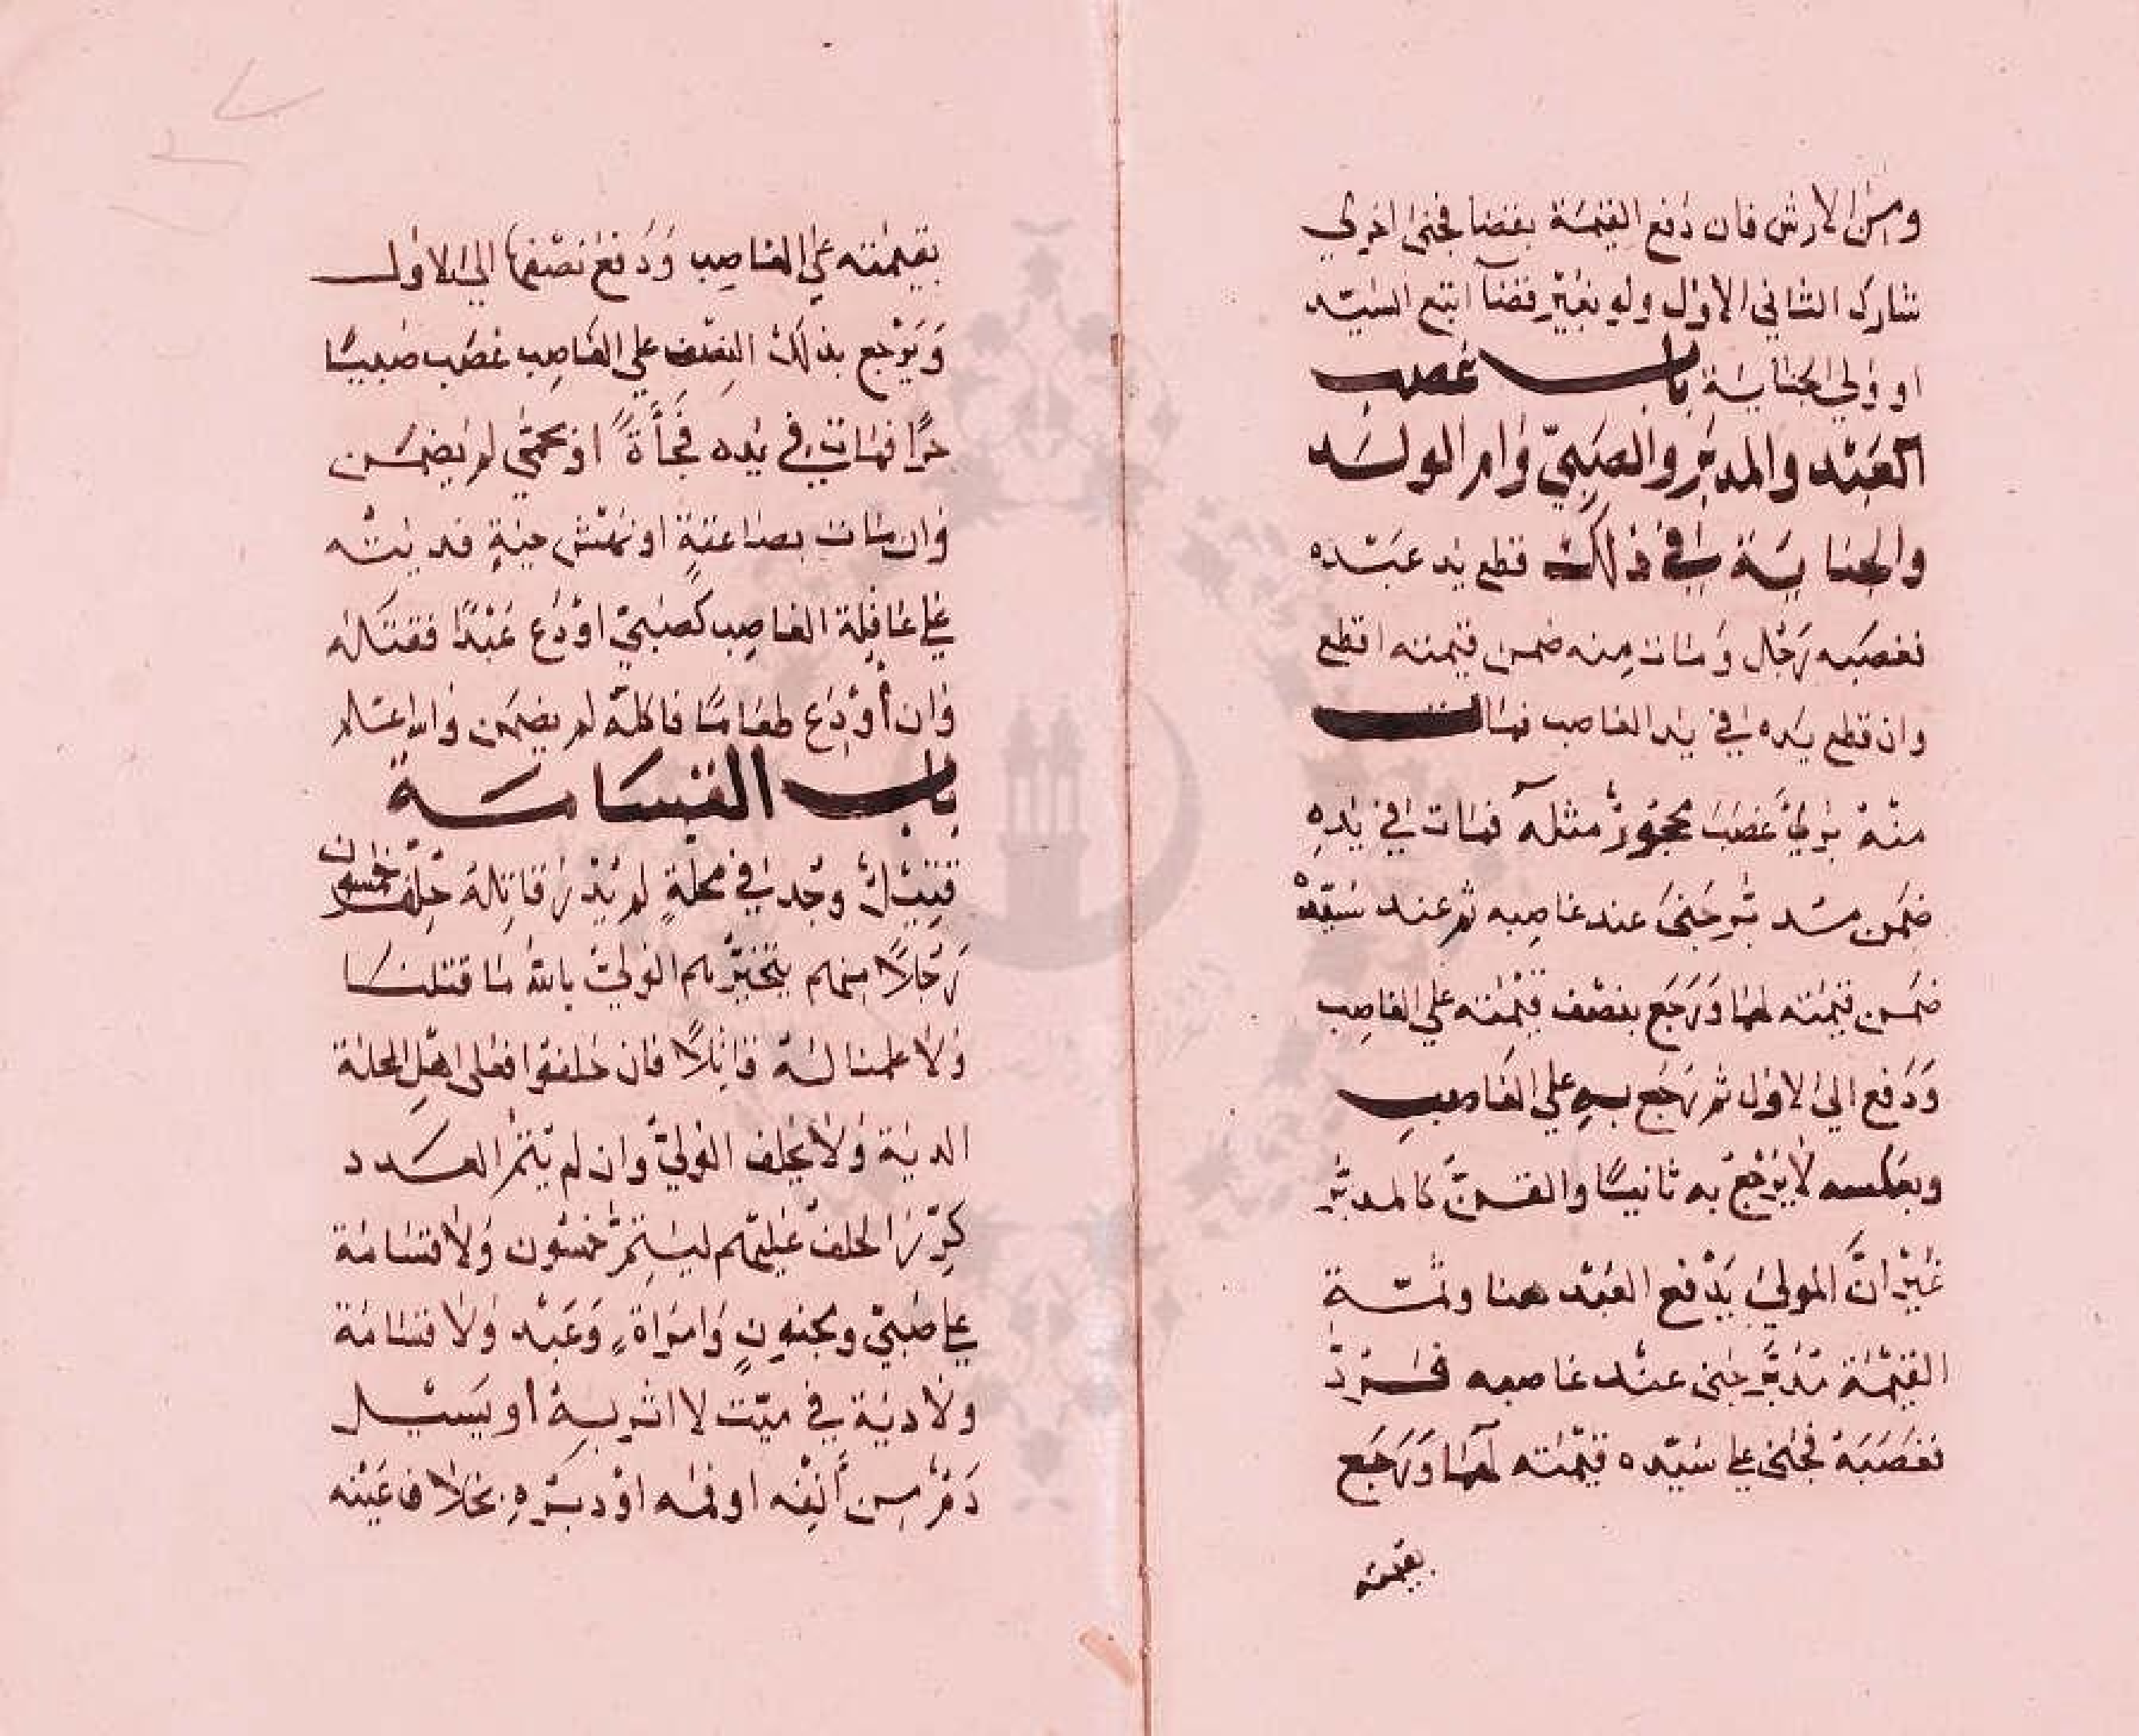 ومن الارش فان دفع القيمة بقضا فجنى اخري
شارك الثاني الاول ولو بغير قضآ اتبع السيّد
او ولي الجناية باب غصب
العَبْد والمدبّر والصَبِيّ وام الولد
والجناية في ذلك قطع يد عبده
فغصبه رجل ومات منه ضمن قيمته اقطع
وان قطع يده في يد الغاصب فمات
منه برئ غصب محجورٌ مثله فمات في يده
ضمن مدبر جنى عند غاصبه ثم عند سيّده
ضمن قيمته لهما ورجع بنصف قيمته على الغاصب
ودفع الى الاول ثم رجع به على الغاصب
وبعكسه لا يرجع به ثانيا والقنّ كالمدبّر
غير انّ المولى يدفع العبد هنا وثمّة
القيمة مدبّر جنى عند غاصبه فردّ
فغصبه فجنى على سيّده قيمته لهما ورجع
بقيمته
بقيمته على الغاصب ودفع نصفها الى الاول
ويرجع بذلك النصف على الغاصب غصب صبيا
حرًّا فمات في يده فجأةً او بحمّى لم يضمن
وان مات بصاعقةٍ او نهش حيةٍ فديته
على عاقلة الغاصب كصبيّ اودع عبْدًا فقتله
وان أُودع طعاما فاكله لم يضمن والله اعلم
باب القسامة
قتيلٌ وجد في محلةٍ لم يدر قاتله حلّف خمسون
رجلاً منهم يتخيّرهم الوليّ بالله ما قتلنا
ولا علمنا له قاتلاً فان حلفوا فعلى اهل المحلة
الدية ولا يحلف الوليّ وان لم يتمّ العدد
كرّر الحلف عليهم ليتمّ خمسون ولا قسامة
على صبيّ ومجنونٍ وامراةٍ وعبد ولا قسامة
ولا دية في ميّت لا اثر به او يسيل
دم من أنفه او فمه او دبره بخلاف عينه